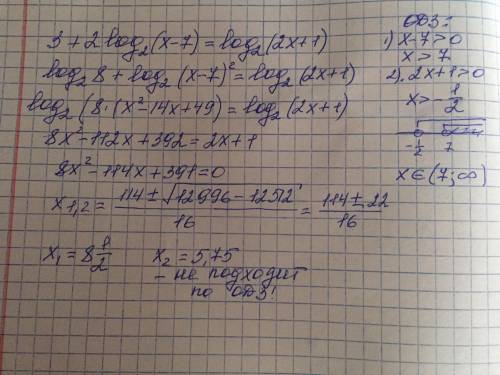 3 + 2 log₂(x-7) = log₂(2x+1)
log₂8 + log₂(x-7)² = log₂(2x+1)
log₂(8·(x²-14x+49) = log₂(2x+1)
8x²-112x+392 = 2x+1
8x²-114x+391=0
x₁,₂ = (114 ± √12996 - 12512)/16 = (114 ± 22)/16
x₁ = 8 1/2 x₂ = 5,75
- не подходит
по ОДЗ!
ОДЗ:
1) x-7>0
x > 7
2). 2x+1>0
x > -1/2
-1/2 7
x∈(7;∞)